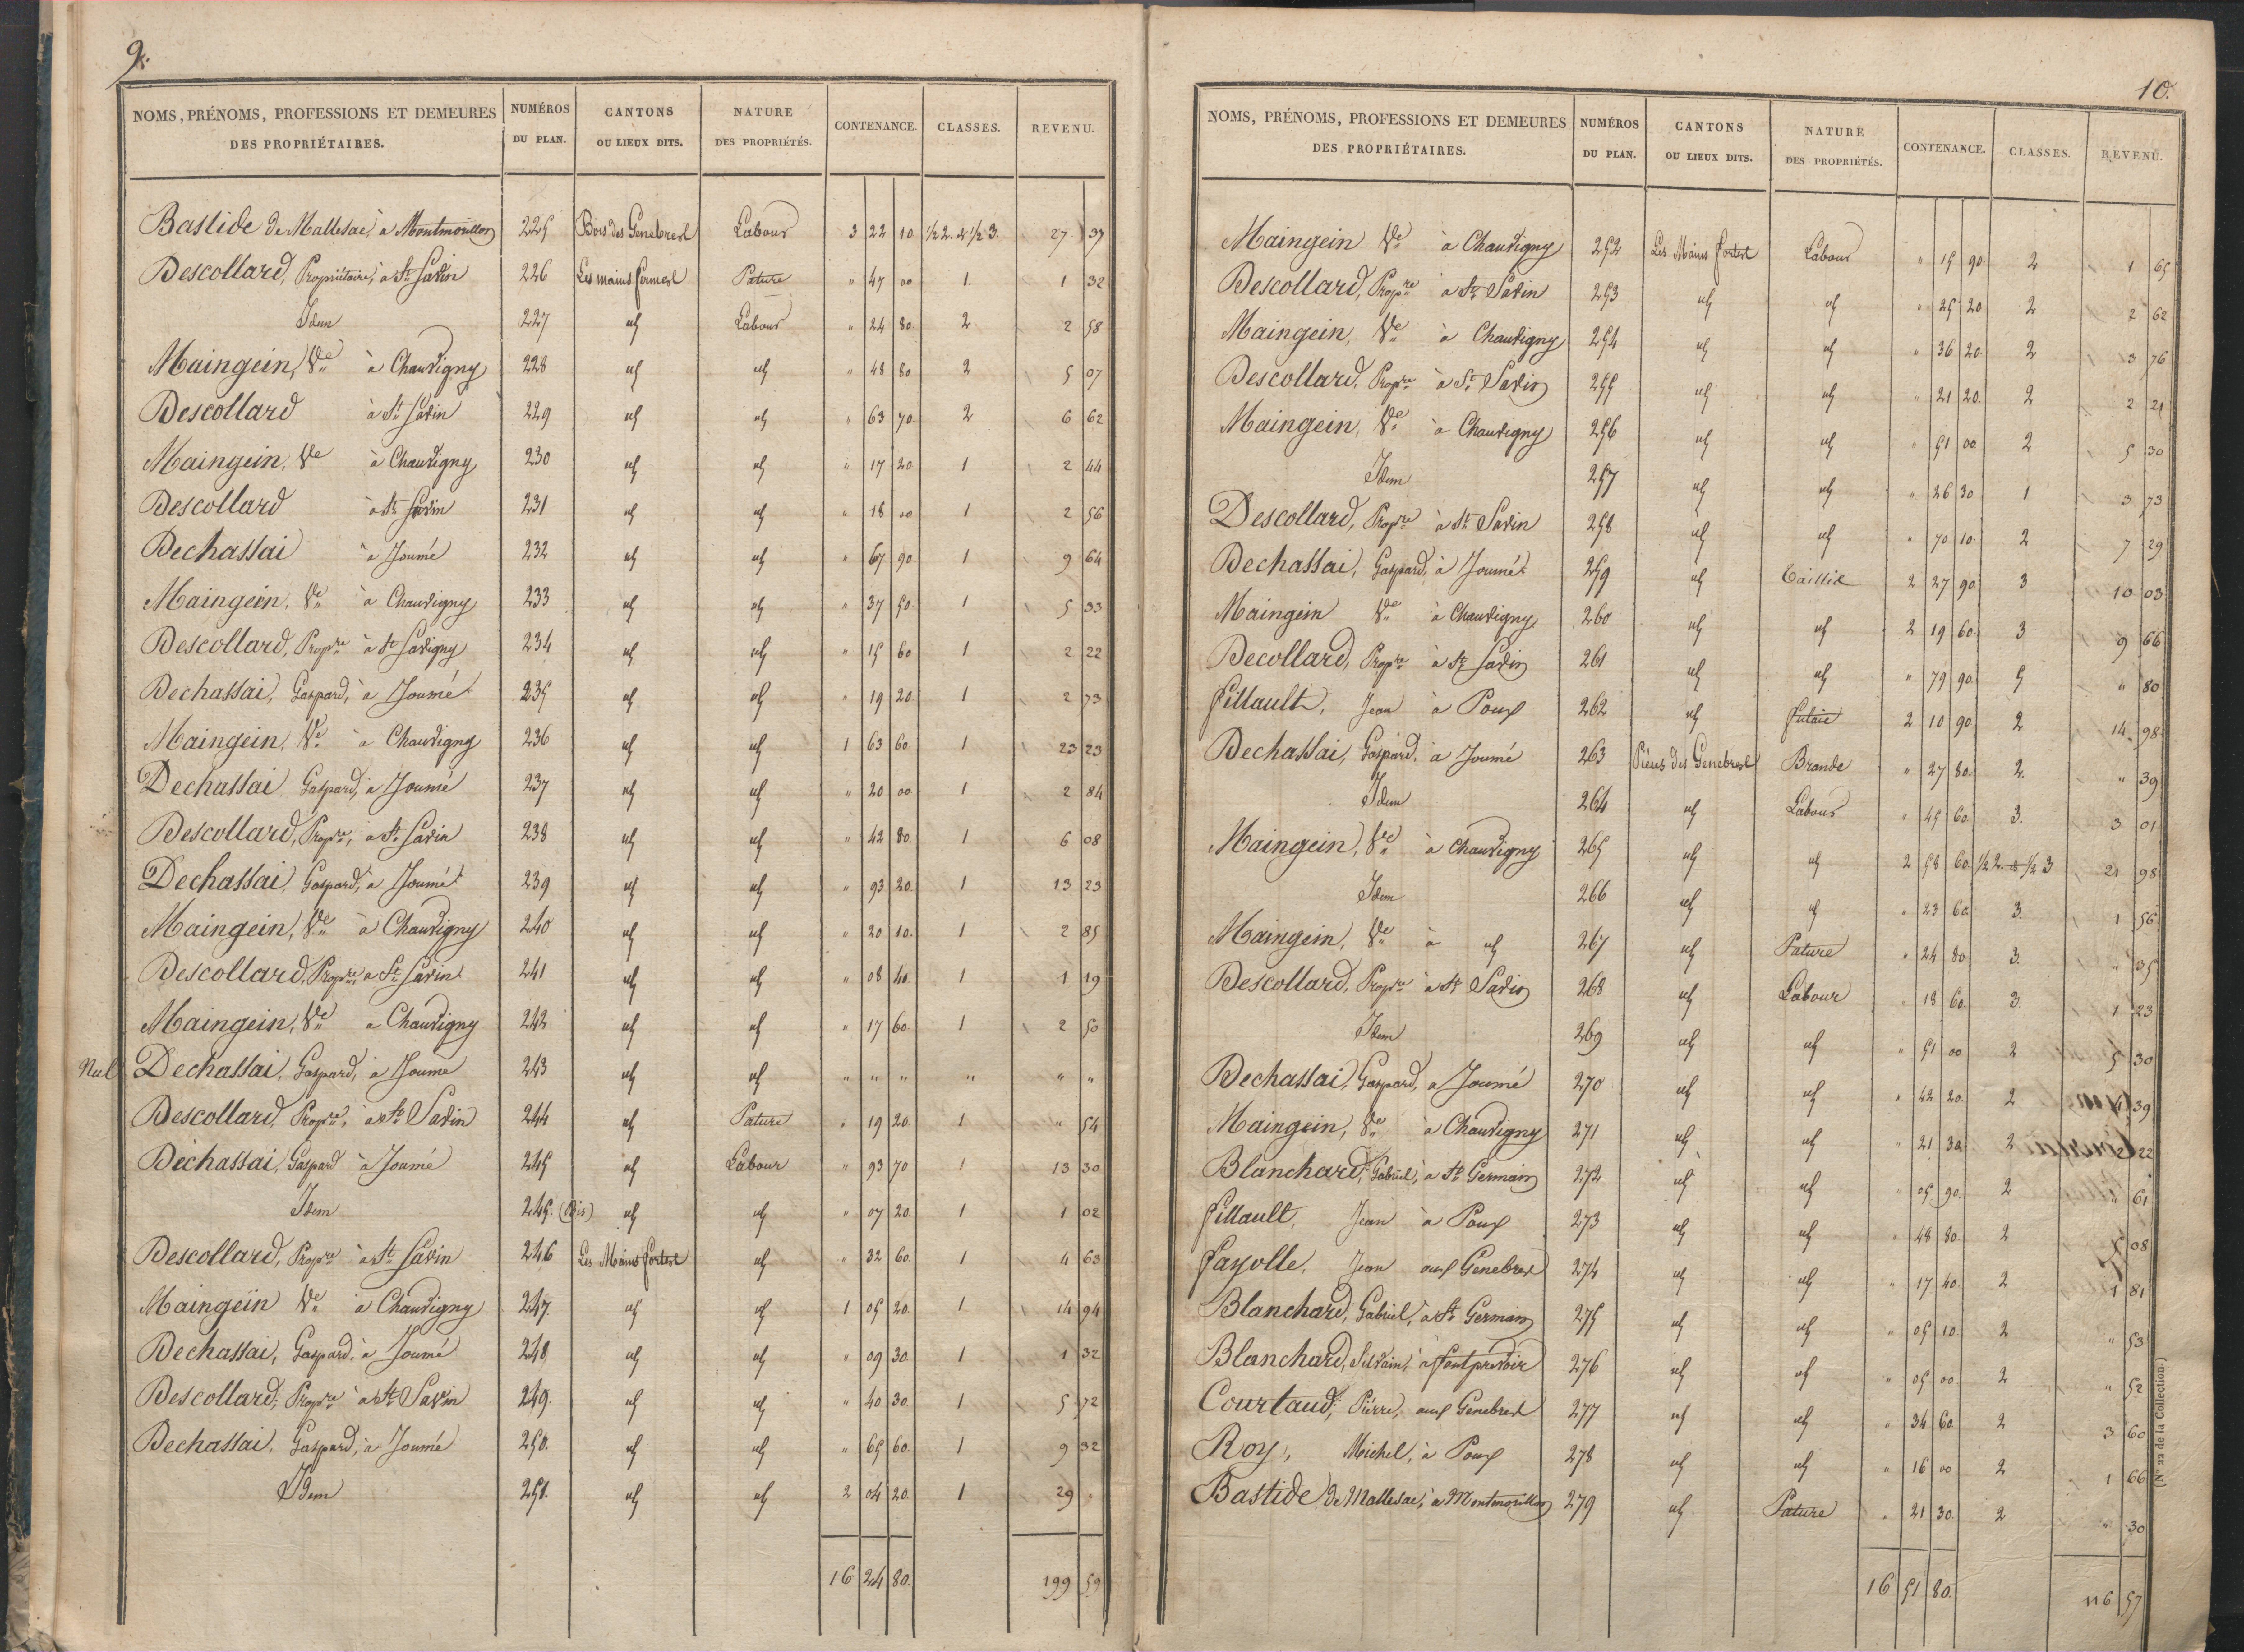 9.
NOMS, PRÉNOMS, PROFESSIONS ET DEMEURES DES PROPRIÉTAIRES. NUMÉROS DU PLAN. CANTONS OU LIEUX DITS. NATURE DES PROPRIÉTÉS. CONTENANCE. CLASSES. REVENU.
Bastide de Mallesac, à Montmorillon 225 Bois des Genebrest Labour 3 22 10 ½ 2. & ½ 3. 27 37
Descollard, Propriétaire, à St Savin 226 Les mains fermest Pature " 47 00 1. 1 32
Idem 227 id Labour " 24 80 2 2 58
Maingein, Ve à Chauvigny 228 id id " 48 80 2 5 07
Descollard à St Savin 229 id id " 63 70 2 6 62
Maingein, Ve à Chauvigny 230 id id " 17 20 1 2 44
Descollard à St Savin 231 id id " 18 00 1 2 56
Dechassai à Joumé 232 id id " 67 90 1 9 64
Maingein, Ve à Chauvigny 233 id id " 37 50 1 5 33
Descollard, Propre à St Savigny 234 id id " 15 60 1 2 22
Dechassai, Gaspard, à Joumé 235 id id " 19 20 1 2 73
Maingein, Ve à Chauvigny 236 id id 1 63 60 1 23 23
Dechassai Gaspard, à Joumé 237 id id " 20 00 1 2 84
Descollard, Propre, à St Savin 238 id id " 42 80 1 6 08
Dechassai, Gaspard, à Joumé 239 id id " 93 20 1 13 23
Maingein, Ve à Chauvigny 240 id id " 20 10 1 2 85
Descollard, Propre, à St Savin 241 id id " 08 40 1 1 19
Maingein, Ve à Chauvigny 242 id id " 17 60 1 2 50
Nul Dechassai, Gaspard, à Joume 243 id id " " " " " "
Descollard, Propre, à St Savin 244 id Pature " 19 20 1 " 54
Dechassai, Gaspard à Joumé 245 id Labour " 93 70 1 13 30
Idem 245. (Bis) id id " 07 20 1 1 02
Descollard, Propre à St Savin 246 Les Mains fortest id " 32 60 1 4 63
Maingein Ve à Chauvigny 247. id id 1 05 20 1 14 94
Dechassai, Gaspard, à Joumé 248 id id " 09 30 1 1 32
Descollard, Propre à St Savin 249. id id " 40 30 1 5 72
Dechassai, Gaspard, à Joumé 250. id id " 65 60 1 9 32
Idem 251. id id 2 04 20 1 29 "
16 24 80. 199 59
10.
NOMS, PRÉNOMS, PROFESSIONS ET DEMEURES DES PROPRIÉTAIRES. NUMÉROS DU PLAN. CANTONS OU LIEUX DITS. NATURE DES PROPRIÉTÉS. CONTENANCE. CLASSES. REVENU.
Maingein Ve à Chauvigny 252 Les Mains fortest Labour " 15 90 2 1 65
Descollard, Propre à St Savin 253 id id " 25 20 2 2 62
Maingein, Ve à Chauvigny 254 id id " 36 20 2 3 76
Descollard, Propre à St Savin 255 id id " 21 20 2 2 21
Maingein, Ve à Chauvigny 256 id id " 51 00 2 5 30
Idem 257 id id " 26 30 1 3 73
Descollard, Propre à St Savin 258 id id " 70 10 2 7 29
Dechassai, Gaspard, à Joumé 259 id Taillis 2 27 90 3 10 03
Maingein Ve à Chauvigny 260 id id 2 19 60 3 9 66
Decollard, Propre à St Savin 261 id id " 79 90 5 " 80
Fillault, Jean à Poux 262 id Futaie 2 10 90 2 14 98
Dechassai, Gaspard, à Joumé 263 Piéces des Genebrest Brande " 27 80 2 " 39
Idem 264 id Labour " 45 60 3. 3 01
Maingein, Ve à Chauvigny 265 id id 2 58 60 ½ 2. & ½ 3 21 98
Idem 266 id id " 23 60 3. 1 56
Maingein, Ve à id 267 id Pature " 24 80 3. " 35
Descollard, Propre à St Savin 268 id Labour " 18 60 3 1 23
Idem 269 id id " 51 00 2 5 30
Dechassai, Gaspard, à Joumé 270 id id " 42 20 2 4 39
Maingein, Ve à Chauvigny 271 id id " 21 30 2 2 22
Blanchard, Gabriel, à St Germain 272 id id " 05 90 2 " 61
Fillault, Jean à Poux 273 id id " 48 80 2 5 08
Fayolle, Jean aux Genebrest 274 id id " 17 40 2 1 81
Blanchard, Gabriel, à St Germain 275 id id " 05 10 2 " 53
Blanchard, Silvain, à Fontprevoir 276 id id " 05 00 2 " 52
Courtaud, Piérre, aux Genebrest 277 id id " 34 60 2 3 60
Roy, Michel, à Poux 278 id id " 16 00 2 1 66
Bastide de Mallesac, à Montmorillon 279 id Pature " 21 30 2 " 30
16 51 80. 116 57
(N° 22 de la Collection.)